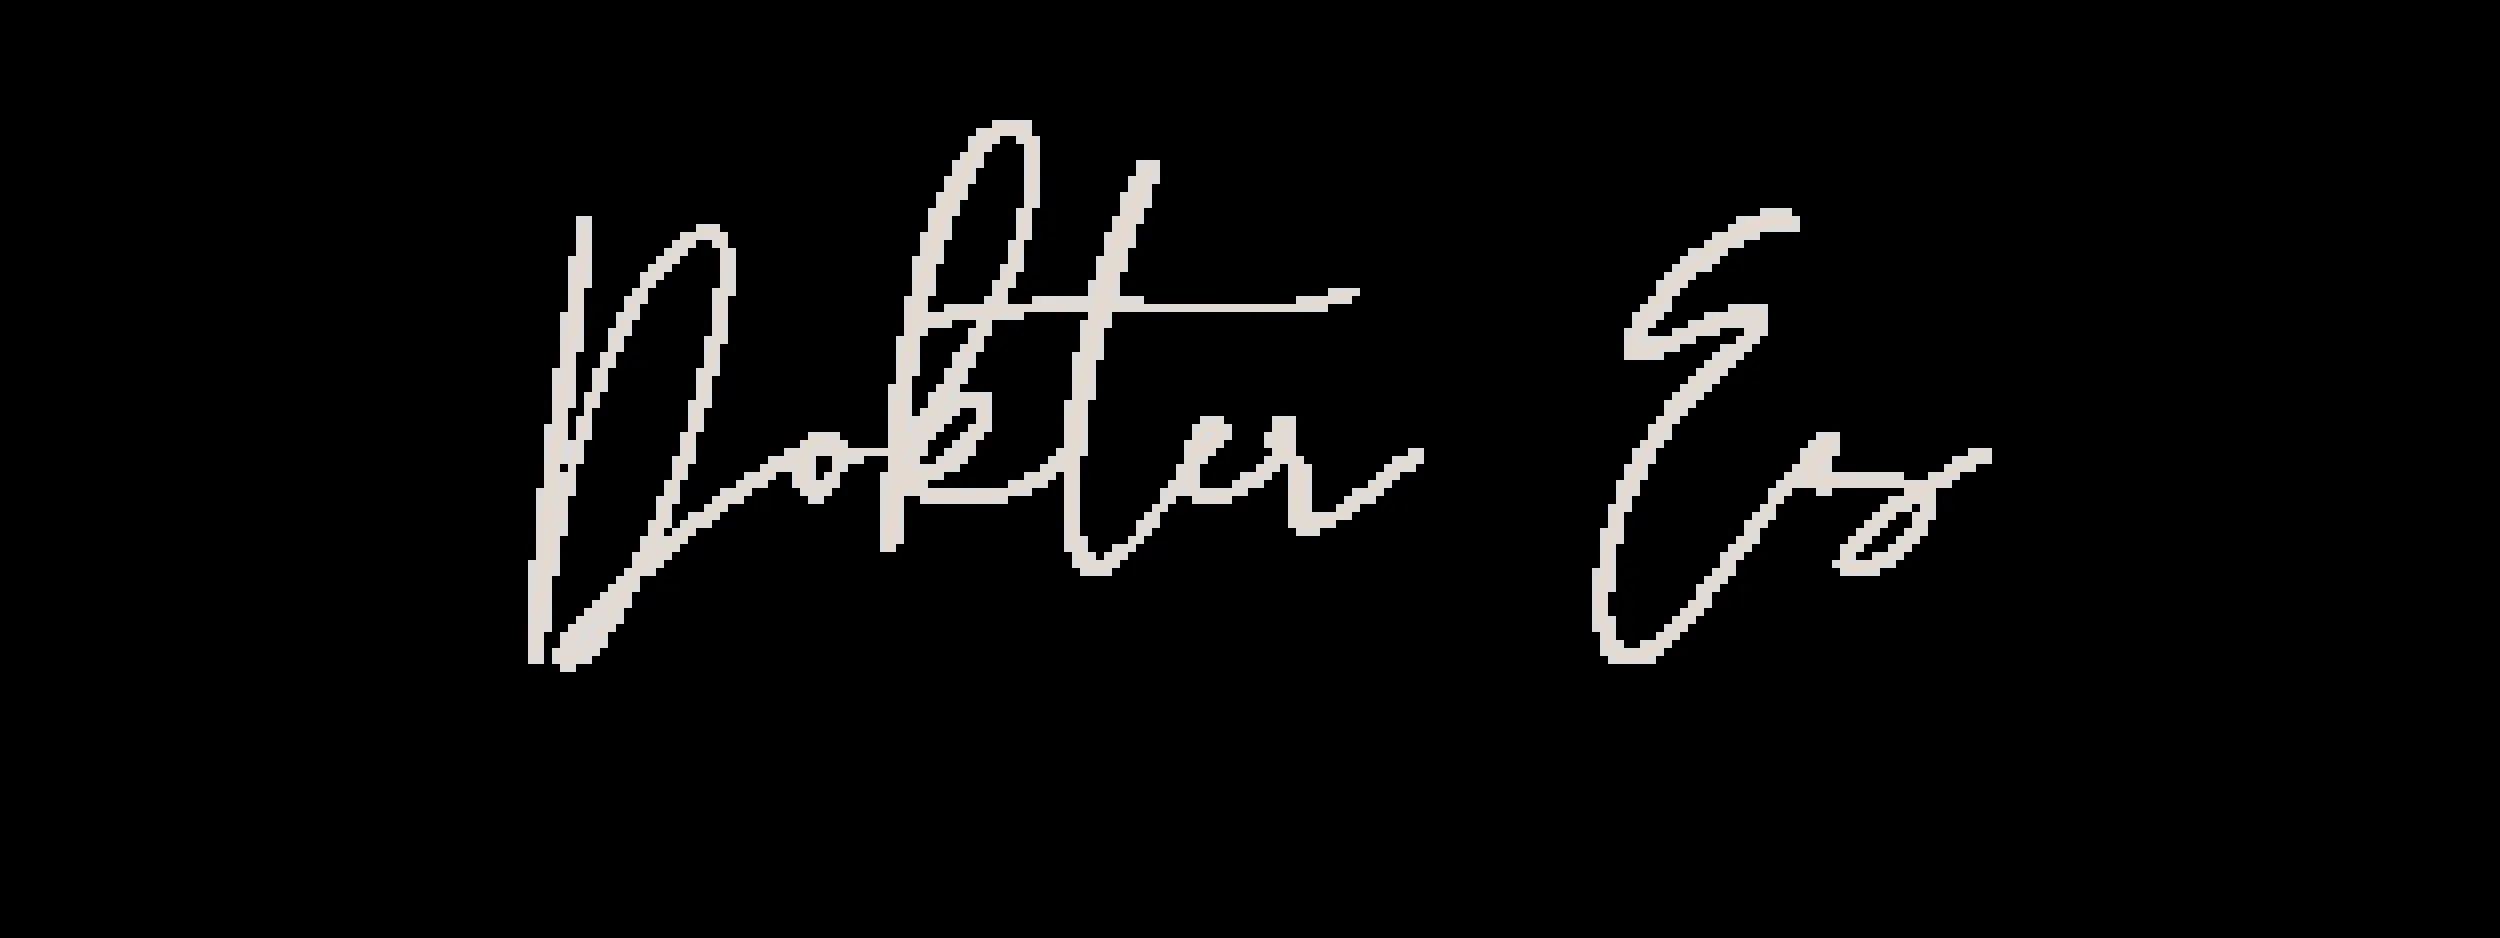 Dokter Es